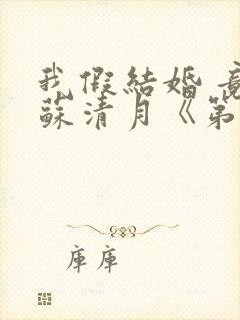 我假結婚
蘇清月《第
庫庫